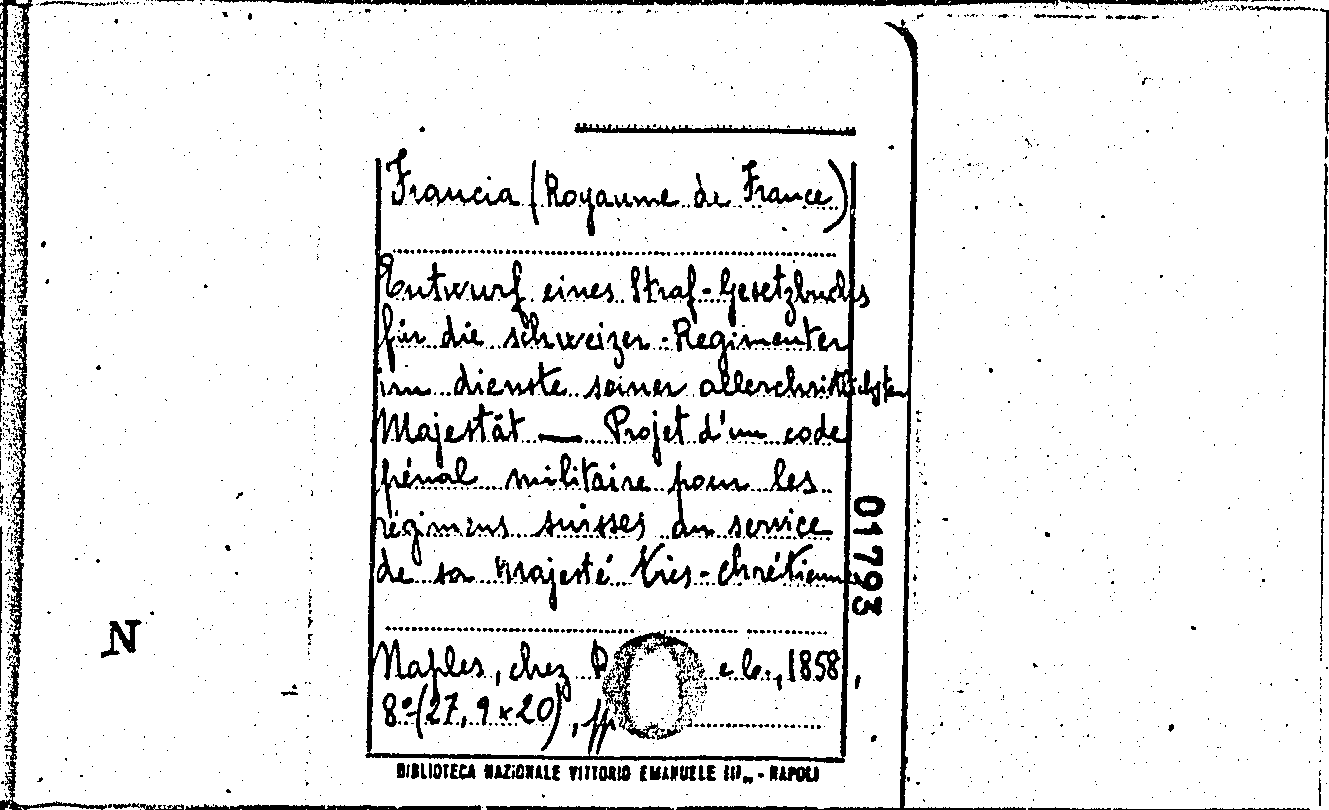 Francia (Royaume de France)
Entwurf eines Straf-Gesetzbuchs
für die schweizer-Regimenter
im dienste seiner allerchristlichsten
Majestät — Projet d'un code
pénal militaire pour les
régimens suisses au service
de sa Majesté très-chrétienne
01793
N
Naples, chez e C., 1858,
8°(27,9x20), pp
BIBLIOTECA NAZIONALE VITTORIO EMANUELE III - NAPOLI